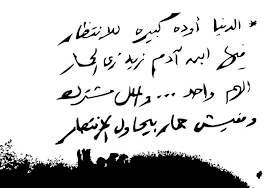 * الدنيا أوده كبيره للانتظار
فيها ابن آدم زيه زي الحمار
الهم واحد ... والملل مشترك
ومفيش حمار بيحاول الانتحار